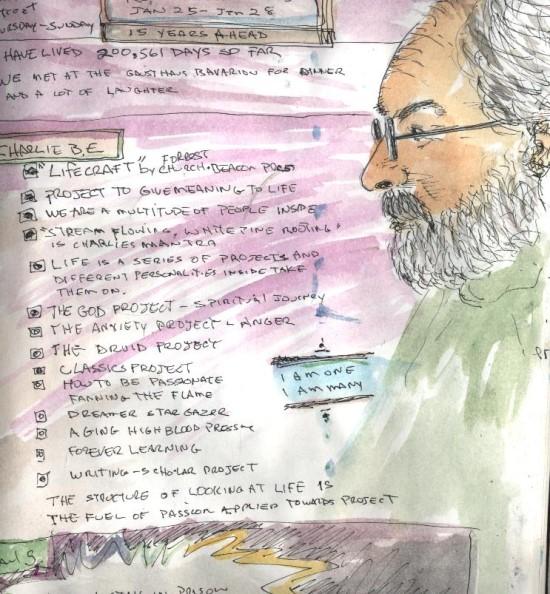 JAN 25 - JAN 28
15 YEARS AHEAD
HAVE LIVED 200,561 DAYS SO FAR
WE MET AT THE GASTHAUS BAVARION FOR DINNER
AND A LOT OF LAUGHTER
CHARLIE B.E
"LIFECRAFT" by FORREST
CHURCH · BEACON PRESS
PROJECT TO GIVE MEANING TO LIFE
WE ARE A MULTITUDE OF PEOPLE INSIDE
"STREAM FLOWING, WHITE PINE ROOTING"
IS CHARLIES MANTRA
LIFE IS A SERIES OF PROJECTS AND
DIFFERENT PERSONALITIES INSIDE TAKE
THEM ON.
THE GOD PROJECT - SPIRITUAL JOURNEY
THE ANXIETY PROJECT & ANGER
THE DRUID PROJECT
CLASSICS PROJECT
HOW TO BE PASSIONATE
FANNING THE FLAME
DREAMER STAR GAZER
AGING HIGH BLOOD PRESSURE
FOREVER LEARNING
WRITING - SCHOLAR PROJECT
THE STRUCTURE OF LOOKING AT LIFE IS
THE FUEL OF PASSION APPLIED TOWARDS PROJECT
I AM ONE
I AM MANY
IN PRISON